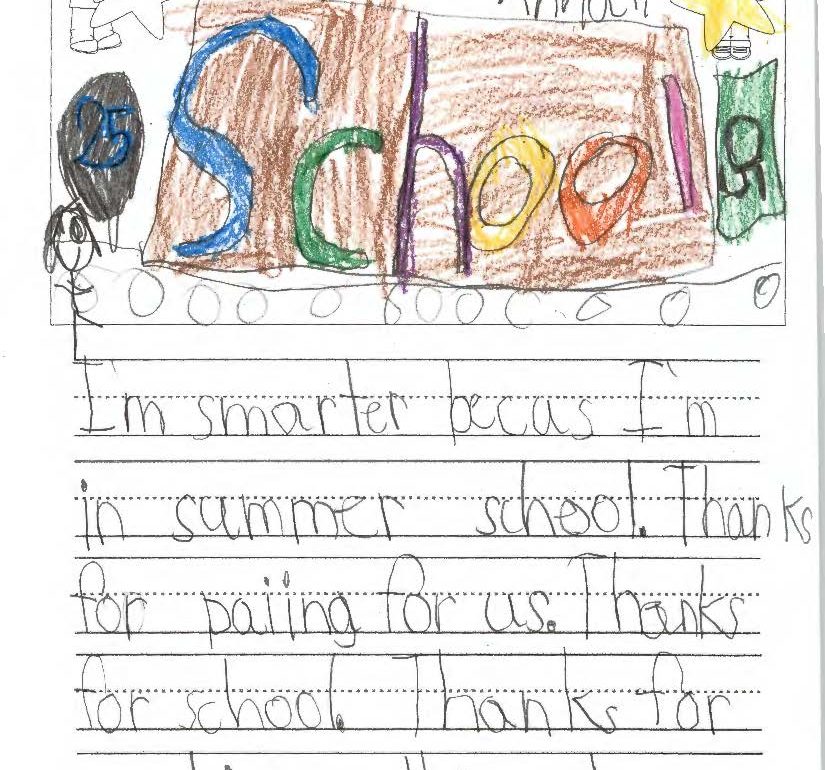 25
School
I'm smarter becus I'm
in summer school. Thanks
for paiing for us. Thanks
for school. Thanks for